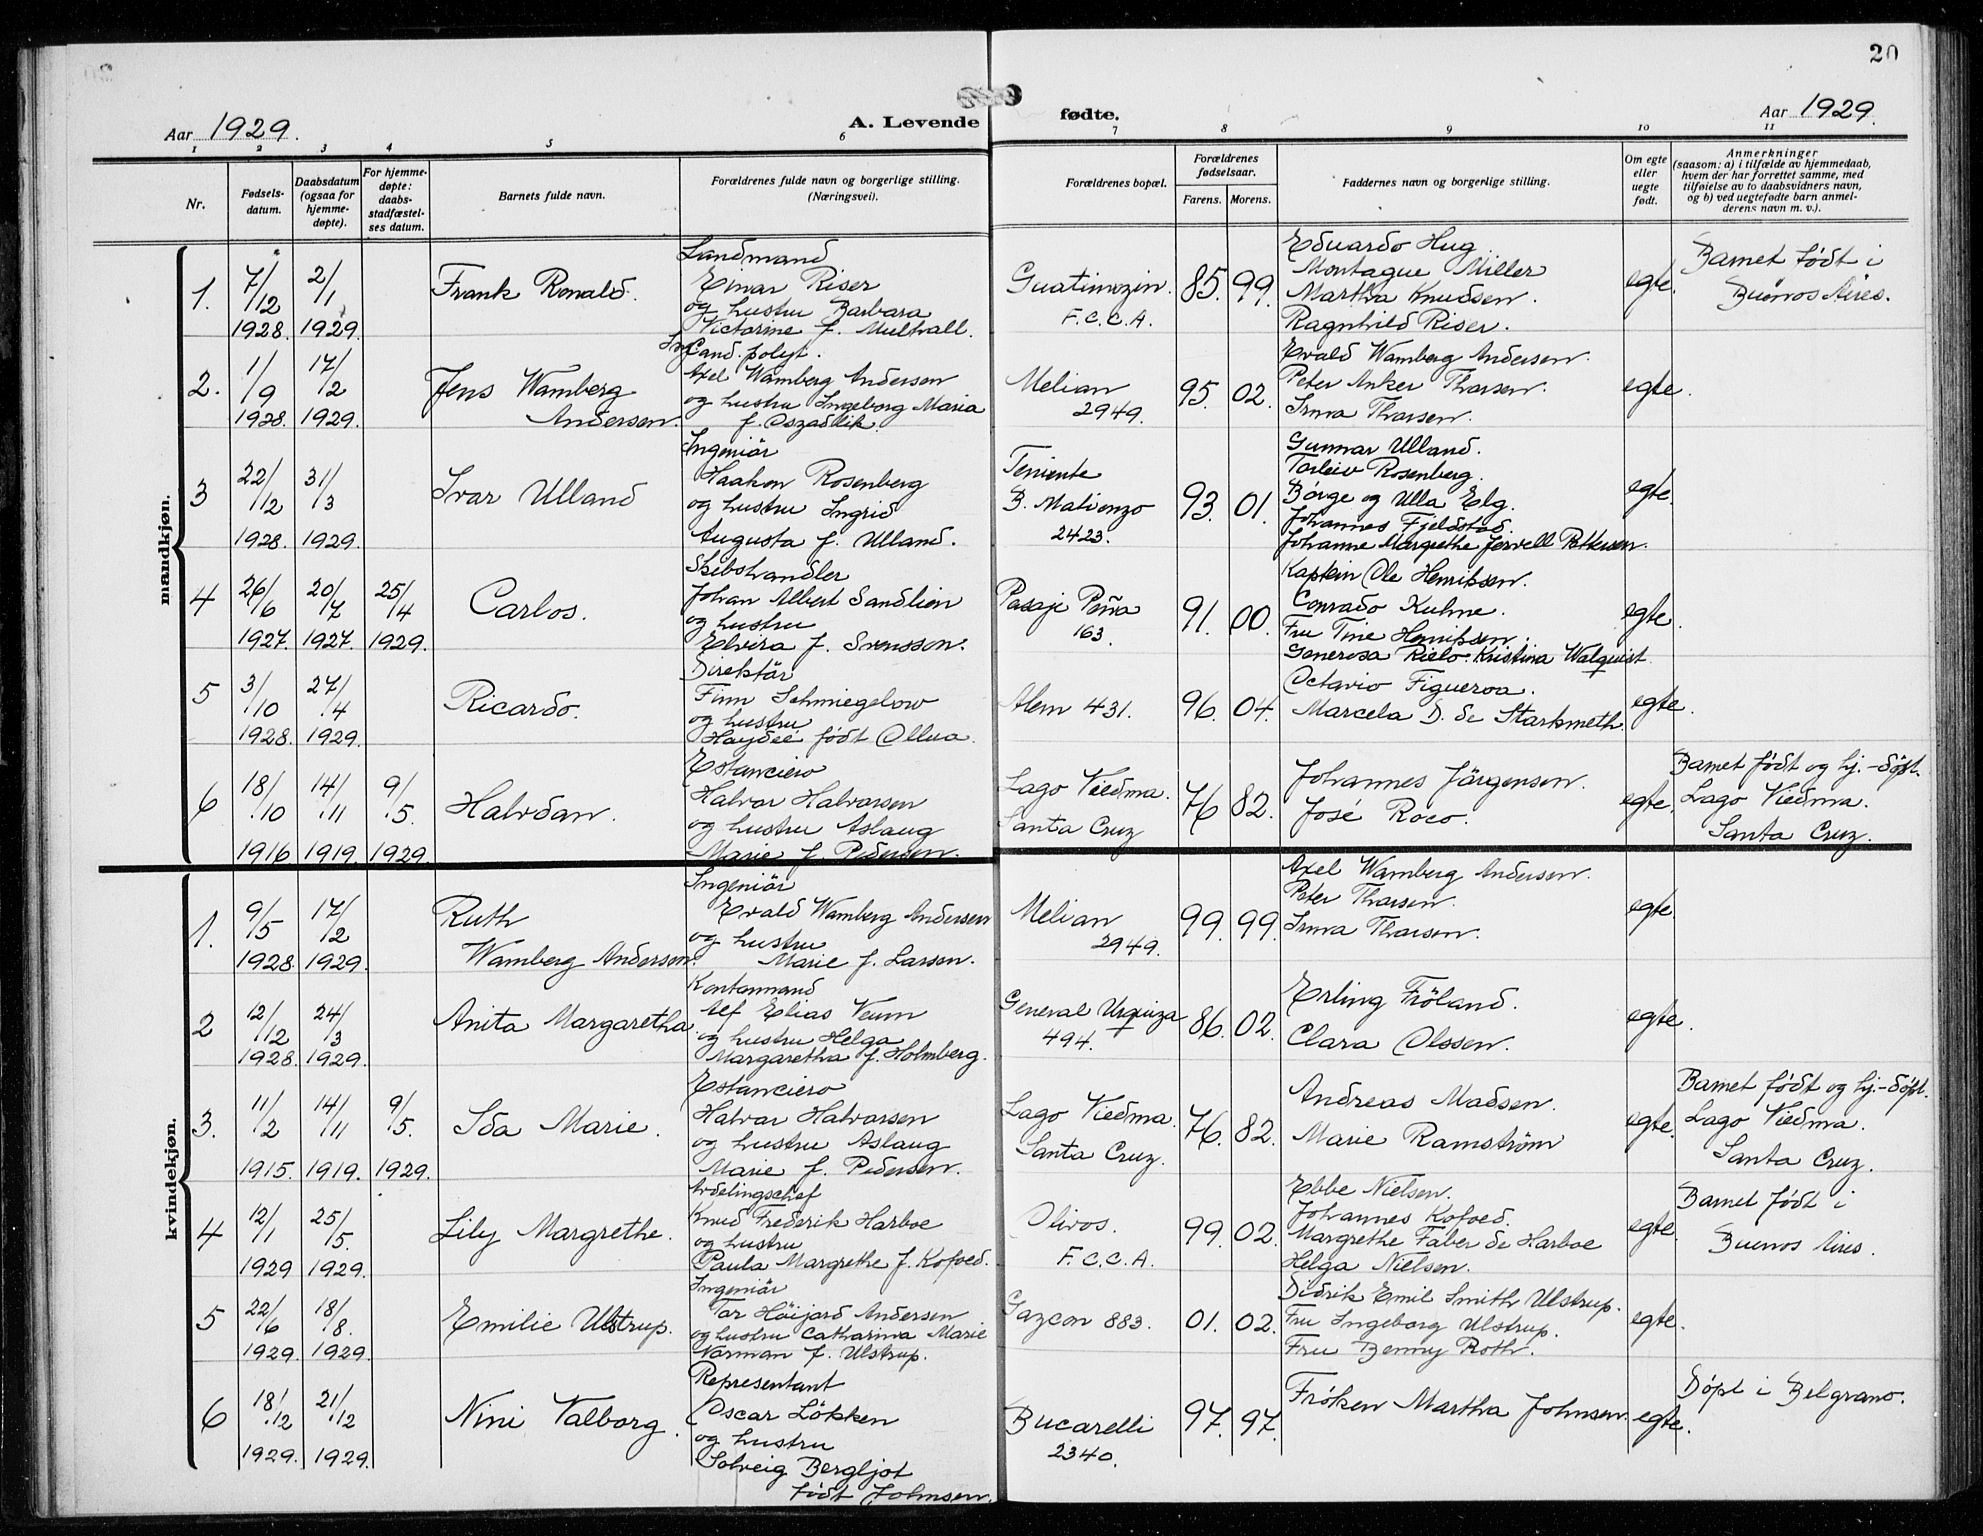 20
Aar 1929.
A. Levende fødte.
Aar 1929.
1 2 3 4 5 6 7 8 9 10 11
Nr.
Fødsels-
datum.
Daabsdatum
(ogsaa for
hjemme-
døpte).
For hjemme-
døpte:
daabs-
stadfæstel-
ses datum.
Barnets fulde navn.
Forældrenes fulde navn og borgerlige stilling.
(Næringsvei).
Forældrenes bopæl.
Forældrenes
fødselsaar.
Farens. Morens.
Faddernes navn og borgerlige stilling.
Om egte
eller
uegte
født.
Anmerkninger
(saasom: a) i tilfælde av hjemmedaab,
hvem der har forrettet samme, med
tilføielse av to daabsvidners navn,
og b) ved uegtefødte barn anmel-
derens navn m. v.).
mandkjøn.
1. 7/12 1928. 2/1 1929.
Frank Ronald.
Landmand
Einar Riser
og hustru Barbara
Victorine f. Mulvall.
Guatimozin.
F.C.C.A.
85. 99.
Eduardo Hug.
Montague Miller
Martha Knudsen.
Ragnhild Riser.
egte.
Barnet født i
Buenos Aires.
2. 1/9 1928. 17/2 1929.
Jens Wamberg
Andersen.
Cand. polyt.
Axel Wamberg Andersen
og hustru Ingeborg Maria
f. Oszadlik.
Melian
2949.
95. 02.
Evald Wamberg Andersen.
Peter Anker Thorsen.
Irma Thorsen.
egte.
3 22/12 1928. 31/3 1929.
Ivar Ulland
Ingeniör
Haakon Rosenberg
og hustru Ingrid
Augusta f. Ulland.
Teniente
B. Matienzo
2423.
93. 01.
Gunnar Ulland.
Torleiv Rosenberg.
Börge og Ulla Elg.
Johannes Fjeldstad.
Johanne Margrethe Jervell Pettersen.
egte.
4 26/6 1927. 20/7 1927. 25/4 1929.
Carlos.
Skibshandler
Johan Albert Sandlien
og hustru
Elvira f. Svensson.
Pasaje Peña
163.
91. 00.
Kaptein Ole Henriksen.
Conrado Kuhne.
Fru Tine Henriksen.
Generosa Rielo. Kristina Walquist.
egte.
5 3/10 1928. 27/4 1929.
Ricardo.
Direktör
Finn Schmiegelow
og hustru
Haydée født Ollua.
Alem 431.
96. 04.
Octavio Figueroa.
Marcela D. de Starkmeth.
egte.
6 18/10 1916 14/11 1919. 9/5. 1929.
Halvdan.
Estanciero
Halvar Halvarsen
og hustru Aslaug
Marie f. Pedersen.
Lago Viedma.
Santa Cruz
76 82.
Johannes Jörgensen.
José Roco.
egte.
Barnet født og hj.-döpt.
Lago Viedma.
Santa Cruz.
kvindekjøn.
1. 9/5 1928. 17/2 1929.
Ruth
Wamberg Andersen.
Ingeniör
Evald Wamberg Andersen
og hustru
Marie f. Larsen.
Melian
2949.
99. 99.
Axel Wamberg Andersen.
Peter Thorsen.
Irma Thorsen.
egte.
2 12/12 1928. 24/3 1929.
Anita Margaretha.
Kontormand
Alf Elias Veum
og hustru Helga
Margaretha f. Holmberg.
General Urquiza
494.
86. 02.
Erling Fröland.
Clara Olssen.
egte.
3. 11/2 1915. 14/11 1919. 9/5. 1929.
Ida Marie.
Estanciero
Halvar Halvarsen
og hustru Aslaug
Marie f. Pedersen.
Lago Viedma.
Santa Cruz.
76. 82.
Andreas Madsen.
Marie Ramström
egte.
Barnet født og hj.-döpt.
Lago Viedma.
Santa Cruz.
4 12/1 1929 25/5. 1929.
Lily Margrethe.
Avdelingschef
Knud Frederik Harboe
og hustru
Paula Margrethe f. Kofoed.
Olivos.
F.C.C.A.
99. 02.
Ebbe Nielsen.
Johannes Kofoed.
Margrethe Faber de Harboe
Helga Nielsen.
egte.
Barnet født i
Buenos Aires.
5 22/6 1929. 18/8. 1929.
Emilie Ulstrup.
Ingeniör
Tor Höijord Andersen
og hustru Catharina Marie
Norman f. Ulstrup.
Gazcon 883.
01. 02.
Didrik Emil Smith Ulstrup.
Fru Ingeborg Ulstrup.
Fru Benny Roth.
egte.
6 18/12 1929. 21/12 1929.
Nini Valborg.
Representant
Oscar Lökken
og hustru
Solveig Bergljot
født Johnsen.
Bucarelli
2340.
97. 97.
Fröken Martha Johnsen.
egte.
Döpt i Belgrano.